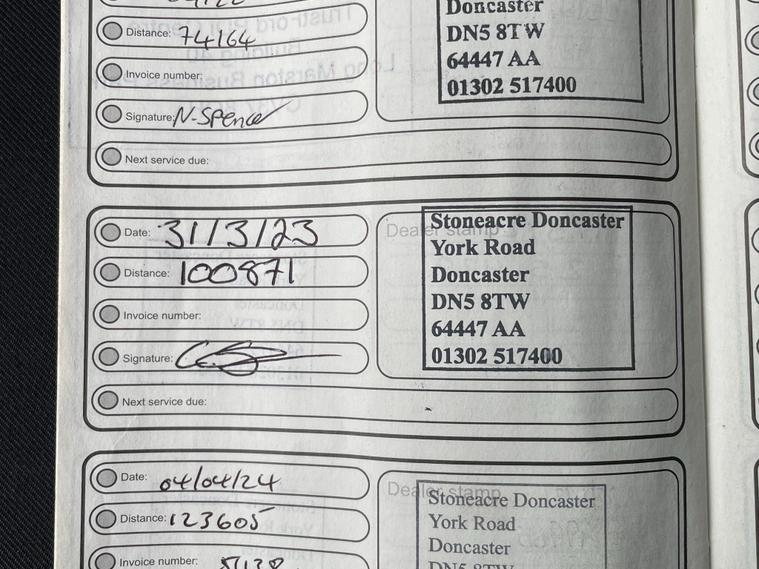 Distance: 74164
Invoice number:
Signature: N-Spence
Next service due:
Doncaster
DN5 8TW
64447 AA
01302 517400
Date: 31/3/23
Distance: 100871
Invoice number:
Signature:
Next service due:
Dealer stamp
Stoneacre Doncaster
York Road
Doncaster
DN5 8TW
64447 AA
01302 517400
Date: 04/04/24
Distance: 123605
Invoice number:
Dealer stamp
Stoneacre Doncaster
York Road
Doncaster
DN5 8TW